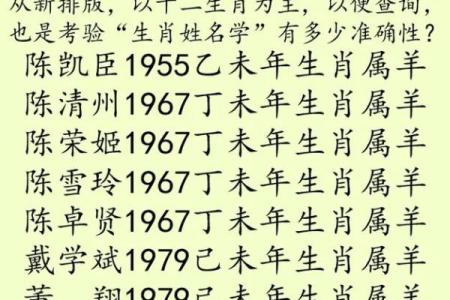 从新排版，以十二生肖为主，以便查询，
也是考验“生肖姓名学”有多少准确性？
陈凯臣1955乙未年生肖属羊
陈清州1967丁未年生肖属羊
陈荣姬1967丁未年生肖属羊
陈雪玲1967丁未年生肖属羊
陈卓贤1967丁未年生肖属羊
戴学斌1979己未年生肖属羊
翔1979己未年生肖属羊